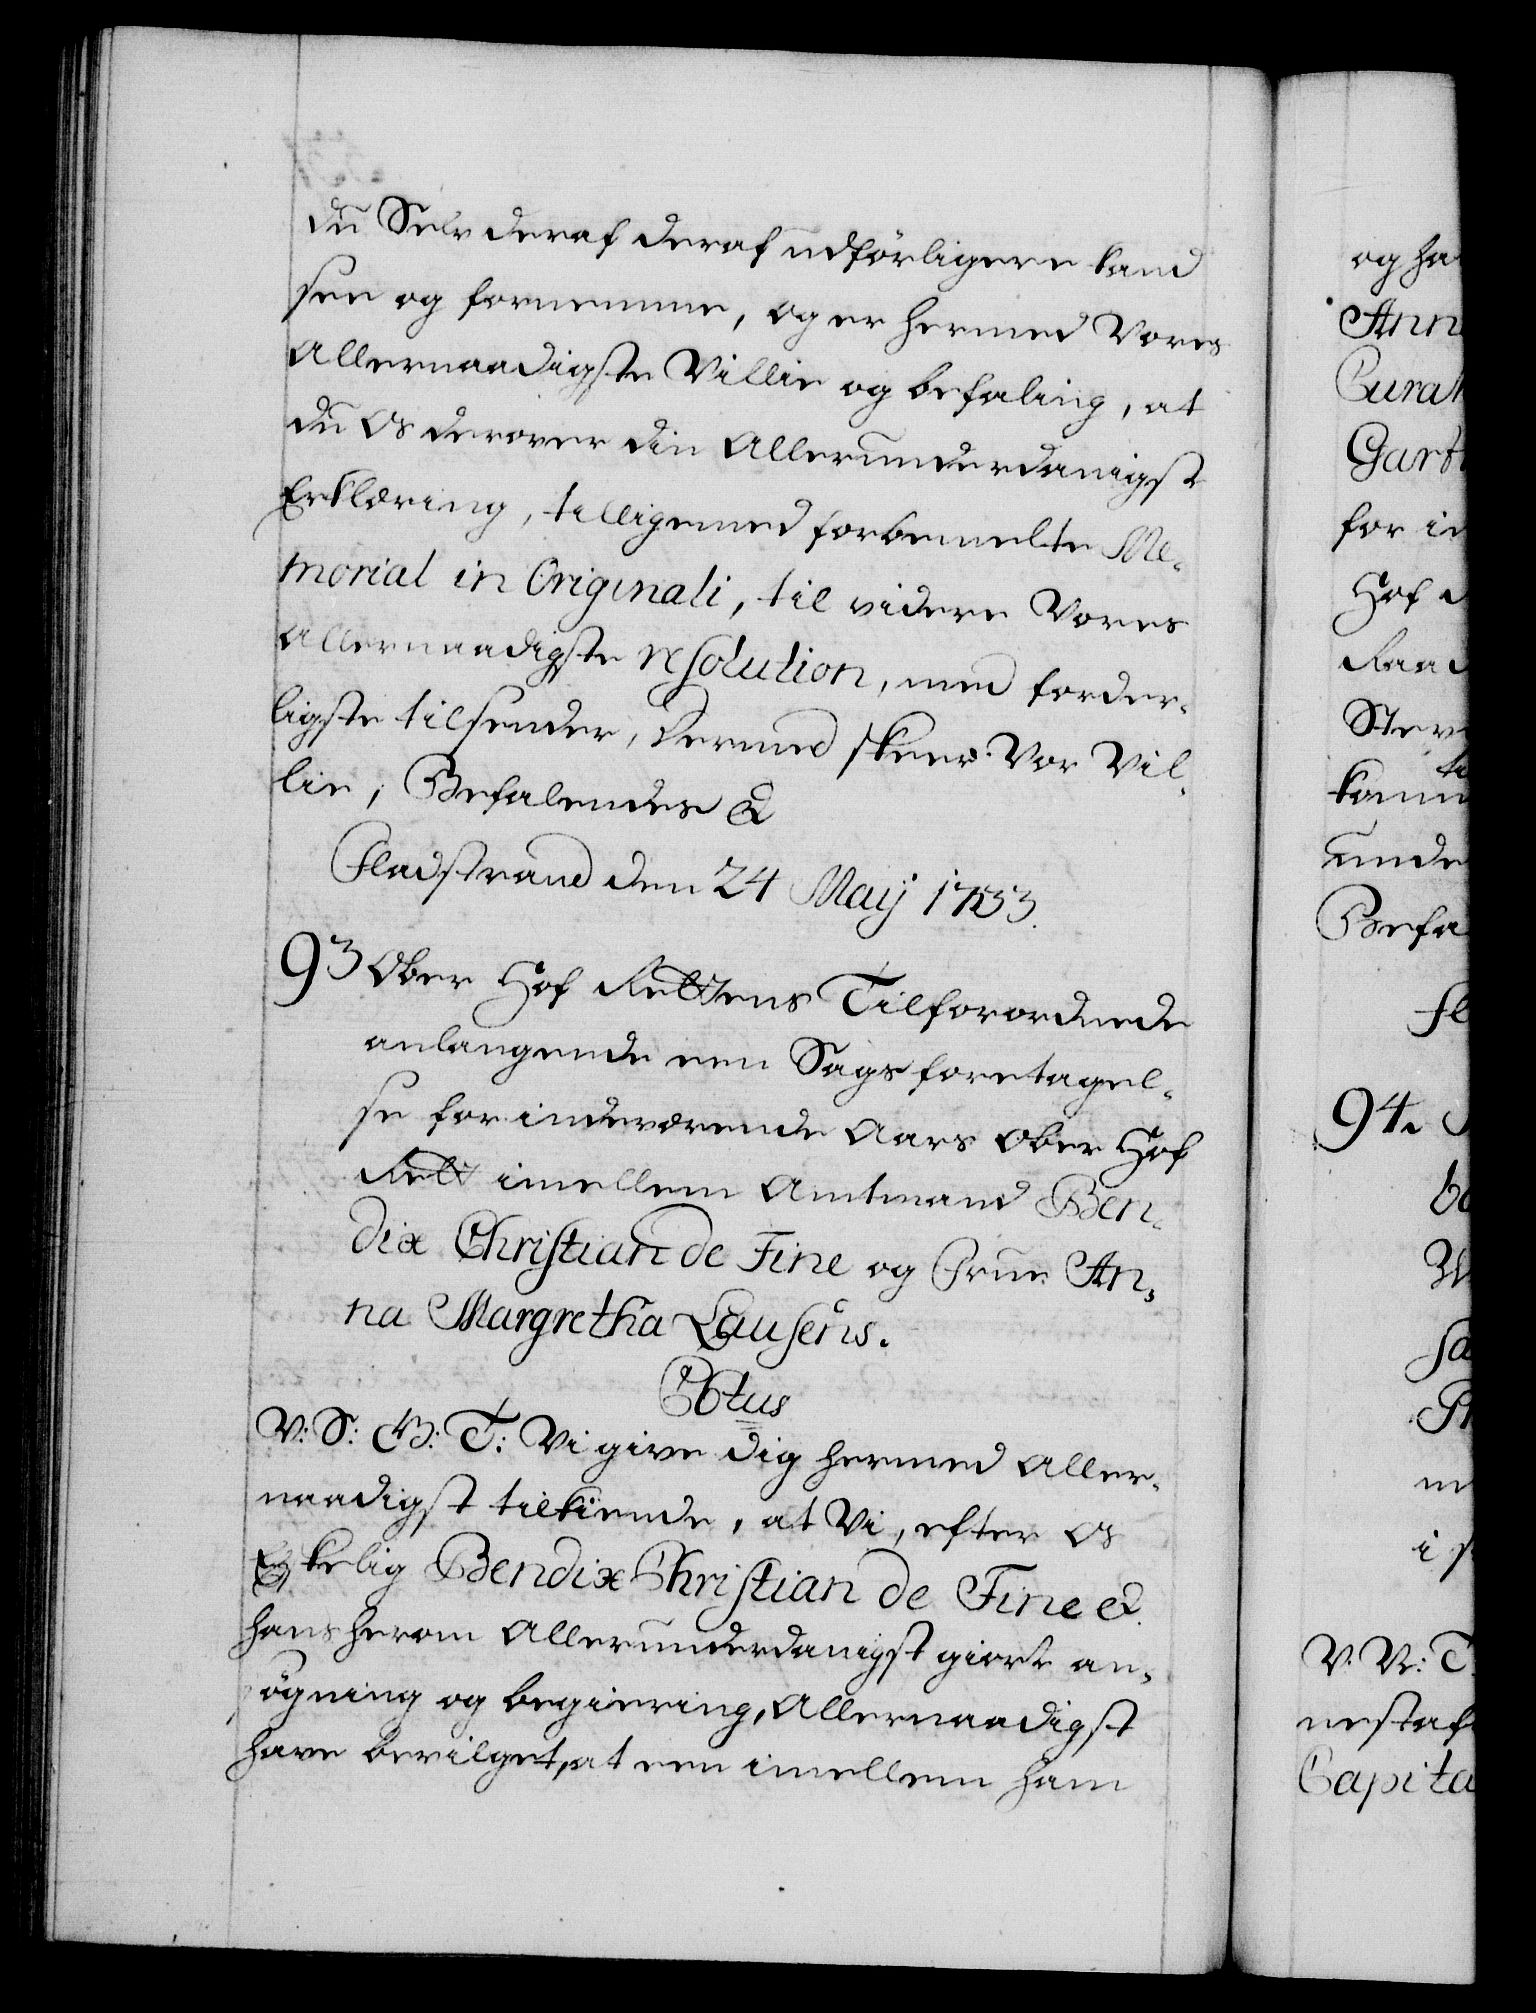 du Selv deraf deraf udförligere kand
see og fornemme, og er hermed Vores
Allernaadigste Villie og befaling, at
du Os derover din Allerunderdanigst
Erklæring, tilligemed forbemelte Me-
morial in Originali, til videre Vores
allernaadigste resolution, med forder-
ligste tilsender, dermed skeer Vor Vil-
lie, Befalendes &
Fladstrand den 24 Maij 1733.
93 Ober Hof Rettens Tilforordnede
anlangende een Sags foretagel-
se for indeværende Aars Ober Hof
Rett imellem Amtmand Ben-
dix Christian de Fine og Frue An-
na Margretha Lausens.
V: S: G: T: Vi give dig hermed Aller-
naadigst tilkiende, at Vi, efter Os
Elskelig Bendix Christian de Fine &
hans herom Allerunderdanigst giorte an-
søgning og begiering, Allernaadigst
have bevilget, at een imellem ham
og ha
Ann
Curat
Gart
for in
Hof
Raad
Stev
ti
komm
unde
Befa
Fl
94.
W
Sa
i
V: V: T
nest af
Capita